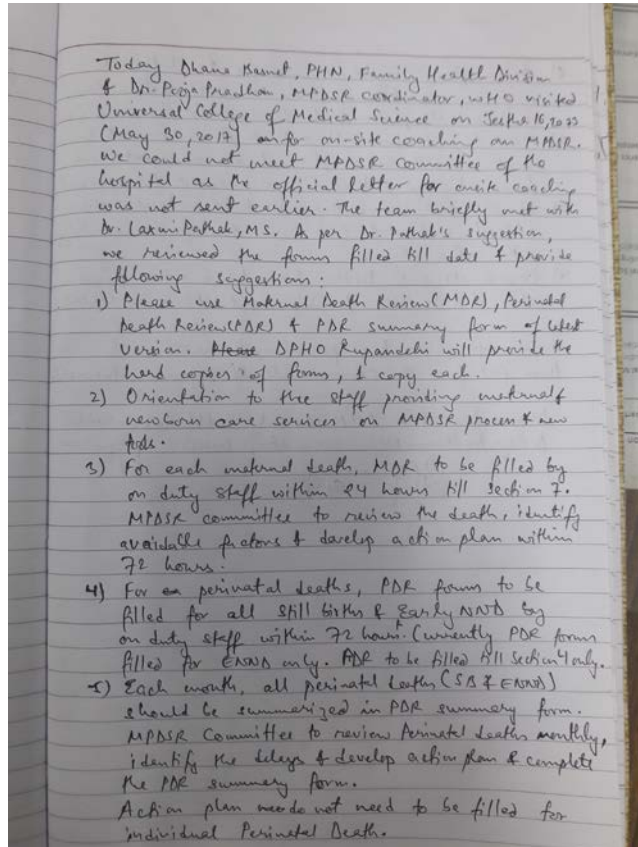 Today Dhana Basnet, PHN, Family Health Division
& Dr. Pooja Pradhan, MPDSR coordinator, WHO visited
Universal College of Medical Science on Jestha 16, 2073
(May 30, 2017) for on-site coaching on MPDSR.
We could not meet MPDSR committee of the
hospital as the official letter for onsite coaching
was not sent earlier. The team briefly met with
Dr. Laxmi Pathak, MS. As per Dr. Pathak's suggestion,
we reviewed the forms filled till date & provide
following suggestions:
1) Please use Maternal Death Review (MDR), Perinatal
Death Review (PDR) & PDR summary form of latest
version. DPHO Rupandehi will provide the
hard copies of forms, 1 copy each.
2) Orientation to the staff providing maternal &
newborn care services on MPDSR process & new
tools.
3) For each maternal death, MDR to be filled by
on duty staff within 24 hours till section 7.
MPDSR committee to review the death, identify
avoidable factors & develop action plan within
72 hours.
4) For perinatal deaths, PDR forms to be
filled for all still births & Early NND by
on duty staff within 72 hours. Currently PDR forms
filled for ENND only. PDR to be filled till section 4 only.
5) Each month, all perinatal deaths (SB & ENND)
should be summarized in PDR summary form.
MPDSR Committee to review Perinatal deaths monthly,
identify the delays & develop action plan & complete
the PDR summary form.
Action plan do not need to be filled for
individual Perinatal Death.